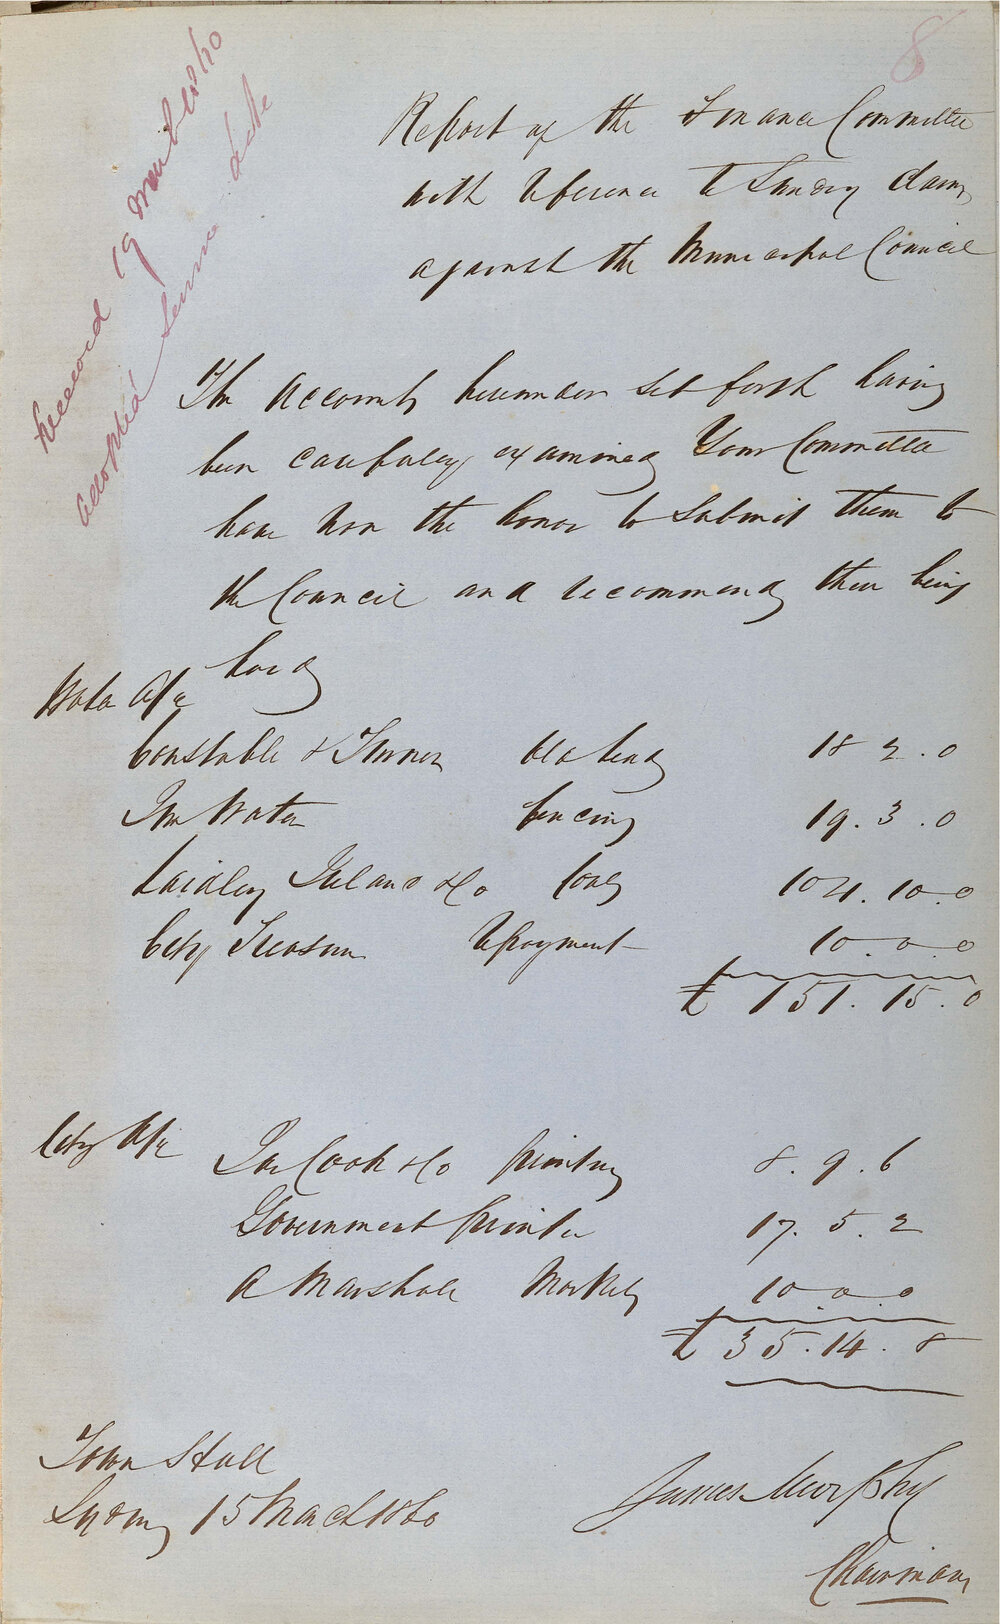 8
Received 19 March 1860
adopted same date
Report of the Finance Committee
with reference to Sundry claims
against the Municipal Council
The Accounts hereunder set forth having
been carefully examined Your Committee
have now the honor to submit them to
the Council and recommend their being
paid
Water A/c
Constable & Turner old lead 18 2.0
Wm Water fencing 19.3.0
Laidley Ireland & Co Coals 104.10.0
City Treasurer Repayment 10.0.0
£ 151.15.0
City A/c
Jas Cook & Co printing 8.9.6
Government printer 17.5.2
A Marshall Markets 10.0.0
£ 35.14.8
Town Hall
Sydney 15 March 1860
James Murphy
Chairman